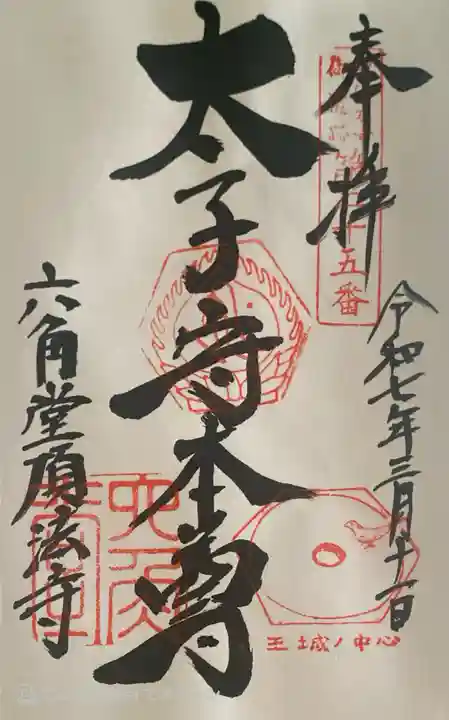 奉拝
五番
令和七年三月十一日
太子守本尊
六角堂頂法寺
六角堂
王城ノ中心